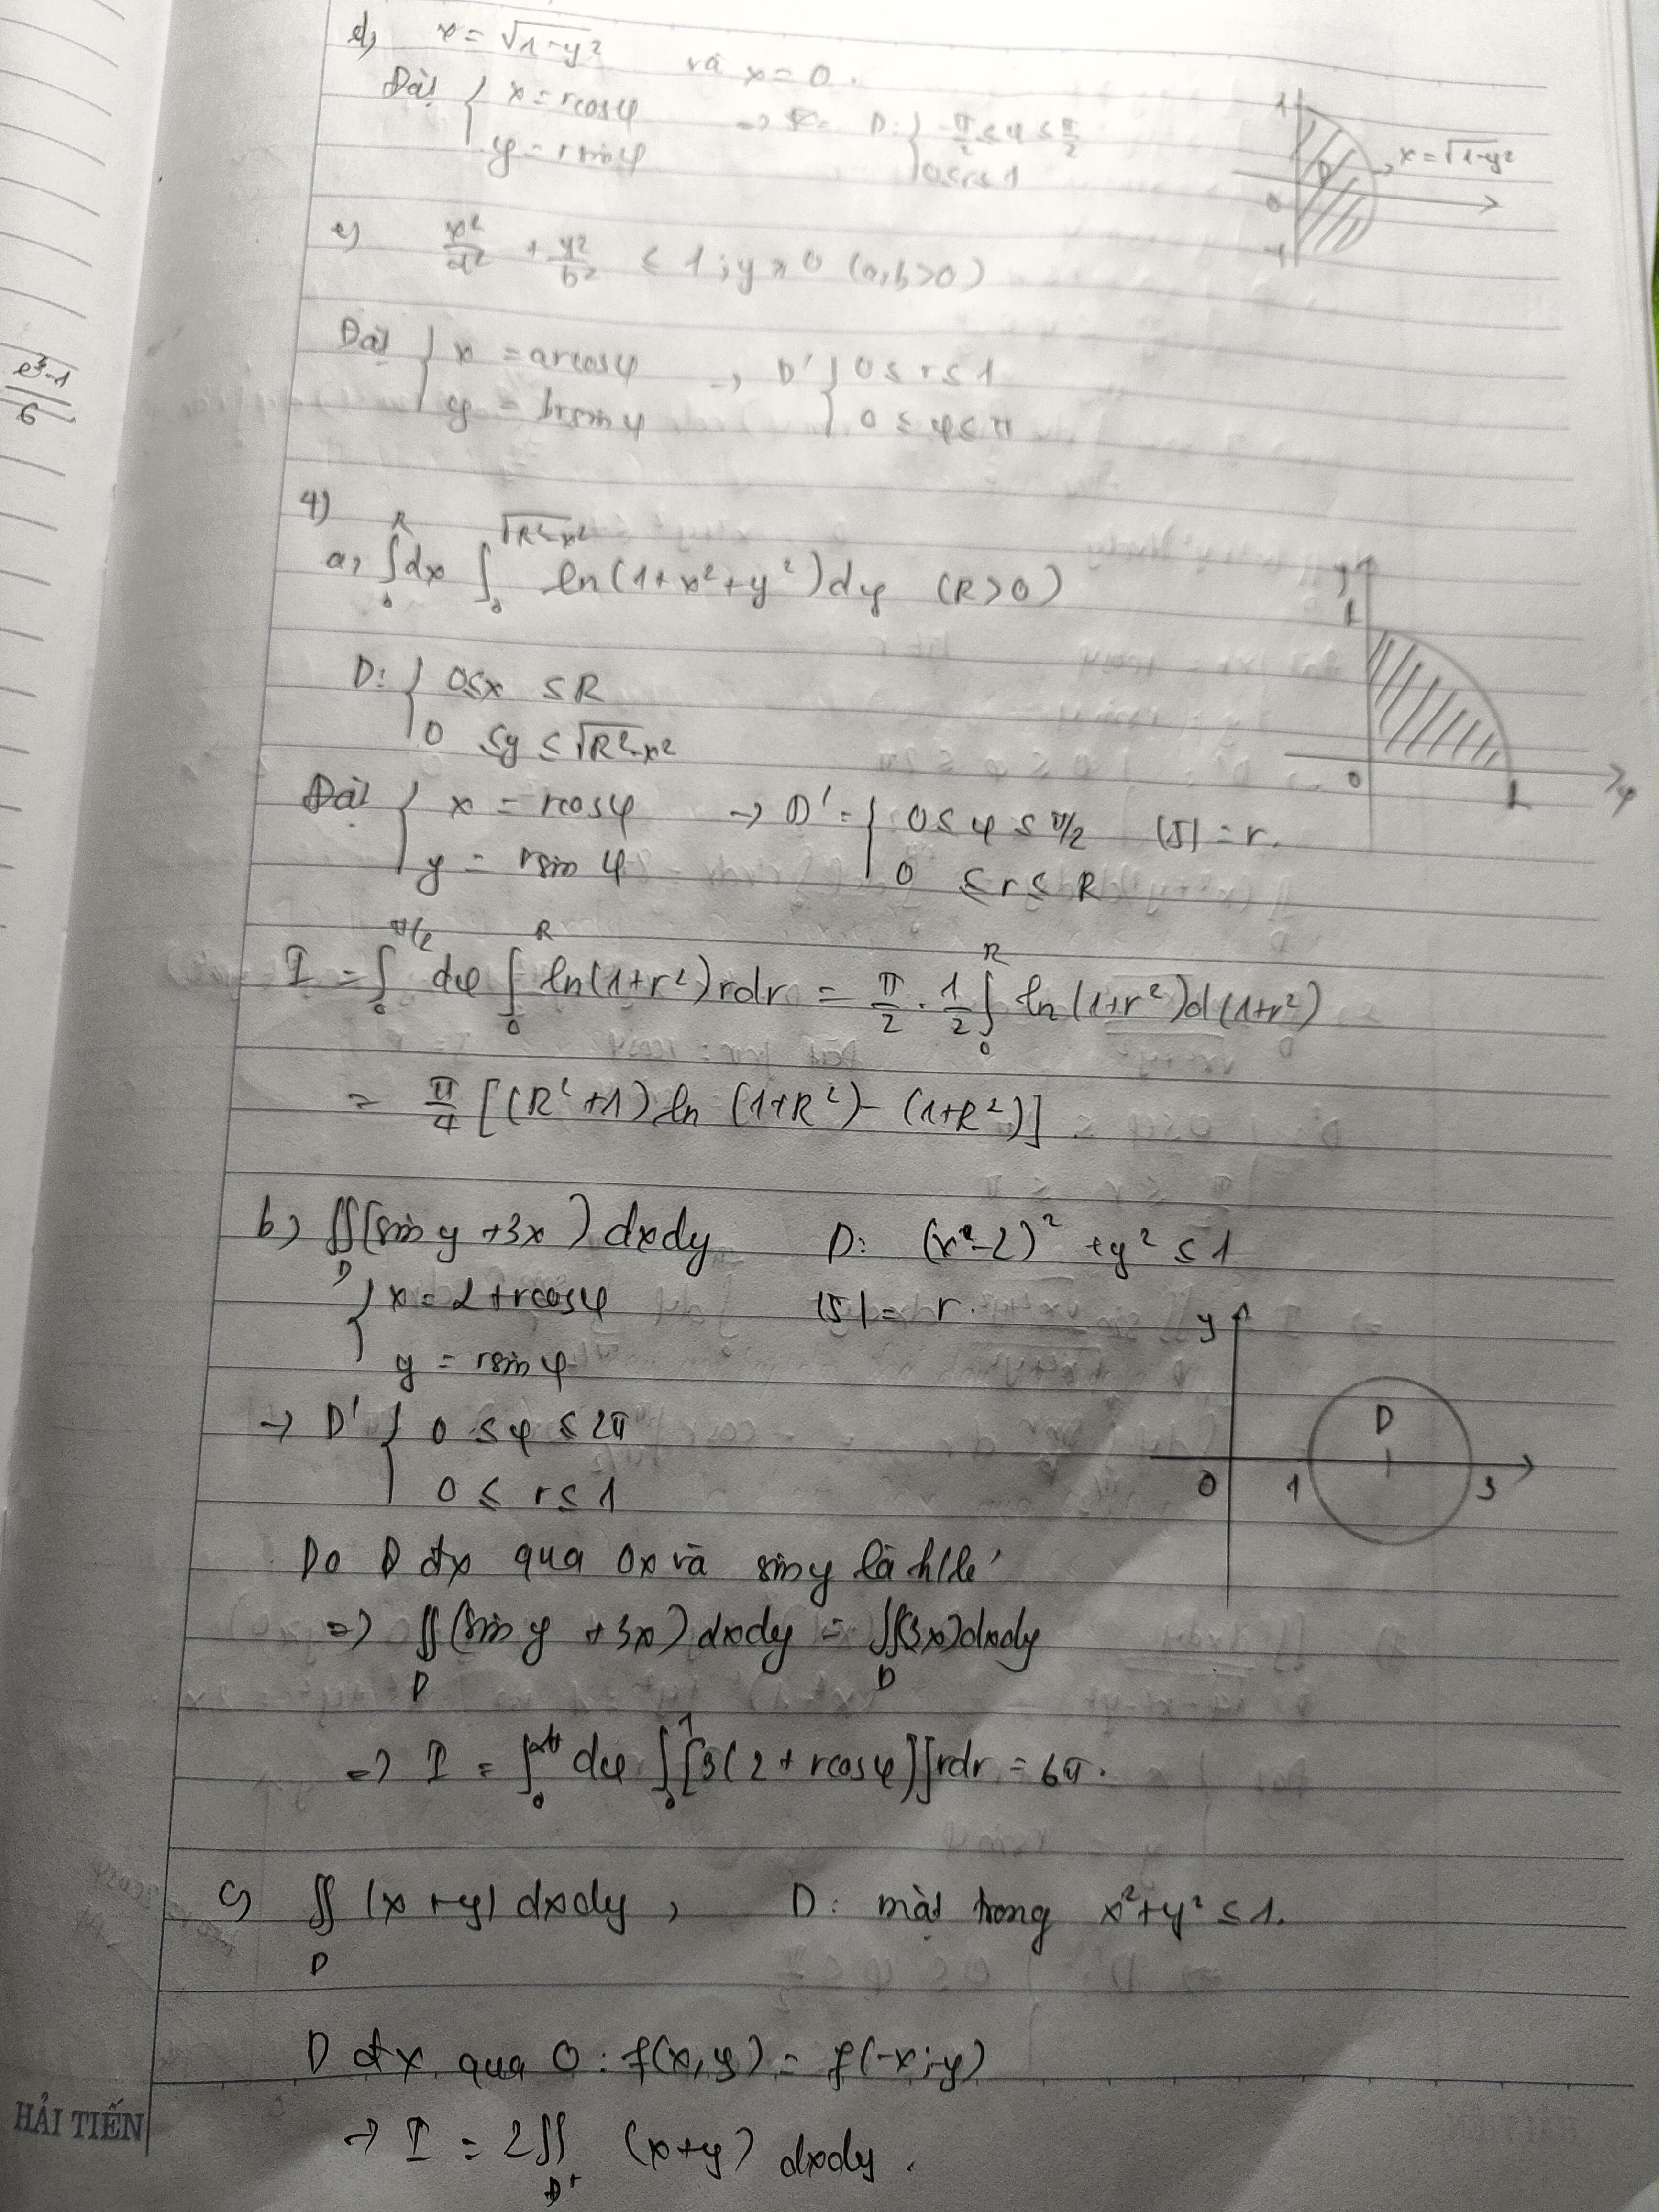 d, x = √(1-y²) và x = 0.
Đặt { x = rcosφ => D: { -π/2 ≤ φ ≤ π/2
y = rsinφ 0≤r≤1
1
D → x = √(1-y²)
0
-1
e) x²/a² + y²/b² ≤ 1 ; y ≥ 0 (a,b>0)
Đặt { x = arcosφ → D' { 0 ≤ r ≤ 1
y = brsinφ 0 ≤ φ ≤ π
e³-1/6
4)
a, ∫₀ᴿ dx ∫₀^√(R²-x²) ln(1+x²+y²)dy (R>0)
D: { 0≤x ≤R
0 ≤y ≤ √(R²-x²)
y
0
Đặt { x = rcosφ → D' = { 0≤ φ ≤ π/2 |J| = r.
y = rsin φ 0 ≤ r ≤ R
I = ∫₀^π/2 dφ ∫₀ᴿ ln(1+r²)rdr = π/2 . 1/2 ∫₀ᴿ ln(1+r²)d(1+r²)
= π/4 [(R²+1)ln (1+R²)- (1+R²)]
b) ∬_D (sin y +3x) dxdy D: (x²-2)² +y² ≤ 1
{ x = 2 +rcosφ |J| = r.
y = rsin φ
→ D' { 0 ≤ φ ≤ 2π
0 ≤ r ≤ 1
y
D
0 1 3
Do D đx qua 0x và siny là h/lẻ
=> ∬_D (sin y +3x) dxdy = ∬_D (3x)dxdy
=> I = ∫₀^2π dφ ∫₀¹ [3(2 + rcosφ)]rdr = 6π.
c) ∬_D (x +y) dxdy , D: mặt trong x²+y² ≤ 1.
D đx qua O : f(x,y) = f(-x;-y)
→ I = 2∬_D' (x+y) dxdy .
HẢI TIẾN